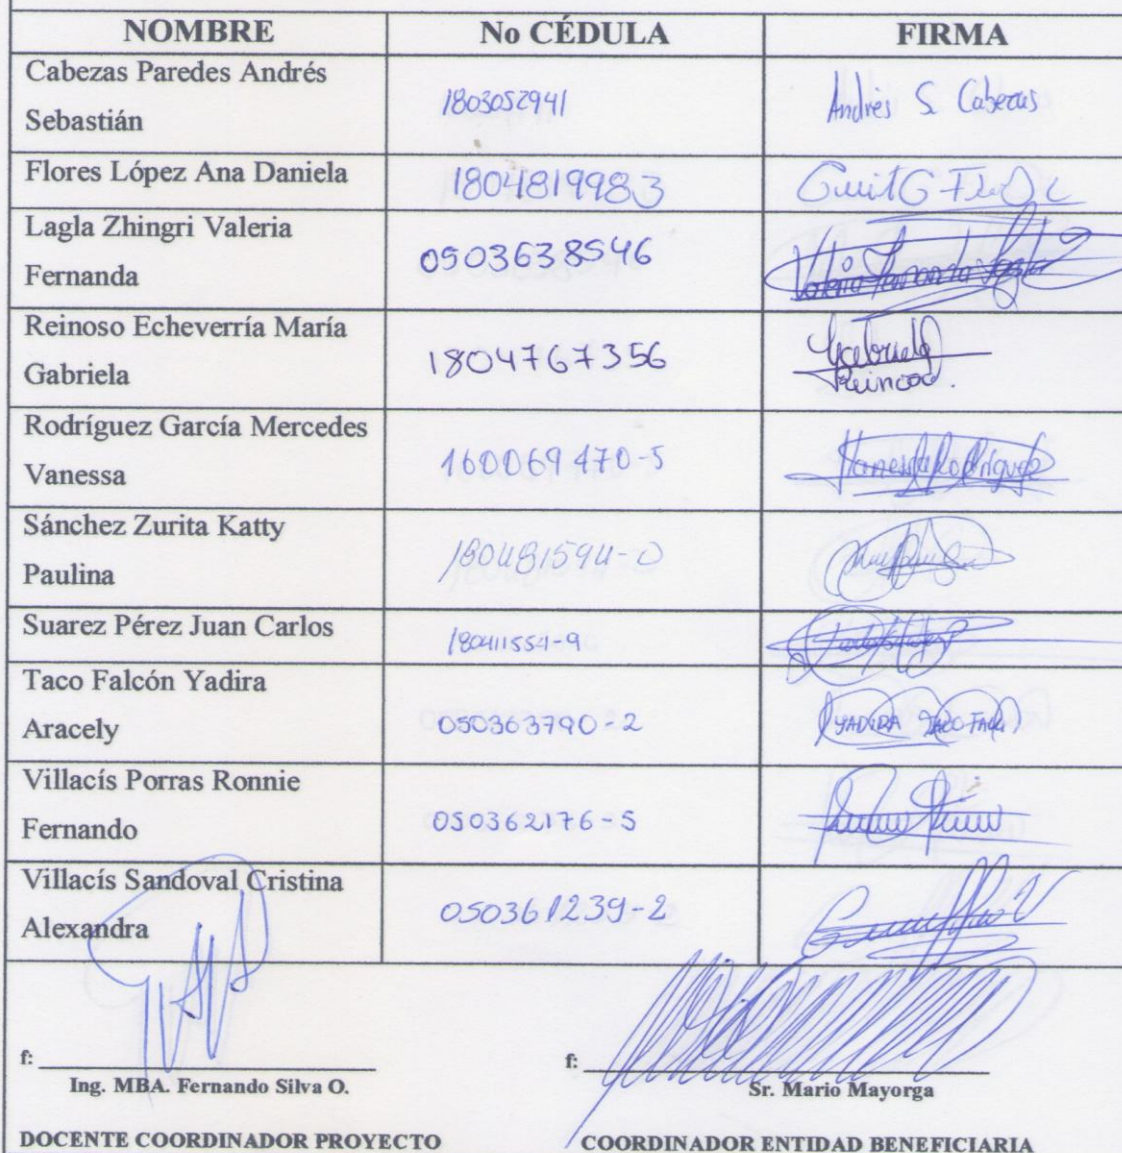 NOMBRE No CÉDULA FIRMA
Cabezas Paredes Andrés
Sebastián 1803052941 Andrés S. Cabezas
Flores López Ana Daniela 1804819983
Lagla Zhingri Valeria
Fernanda 0503638546 Valeria Fernanda Lagla
Reinoso Echeverría María
Gabriela 1804767356 Gabriela
Reinoso.
Rodríguez García Mercedes
Vanessa 160069470-5 Vanessa Rodríguez
Sánchez Zurita Katty
Paulina 180481594-0
Suarez Pérez Juan Carlos 180411554-9
Taco Falcón Yadira
Aracely 050363790-2 YADIRA TACO FALCÓN
Villacís Porras Ronnie
Fernando 050362176-5
Villacís Sandoval Cristina
Alexandra 050361239-2
f: f:
Ing. MBA. Fernando Silva O. Sr. Mario Mayorga
DOCENTE COORDINADOR PROYECTO COORDINADOR ENTIDAD BENEFICIARIA